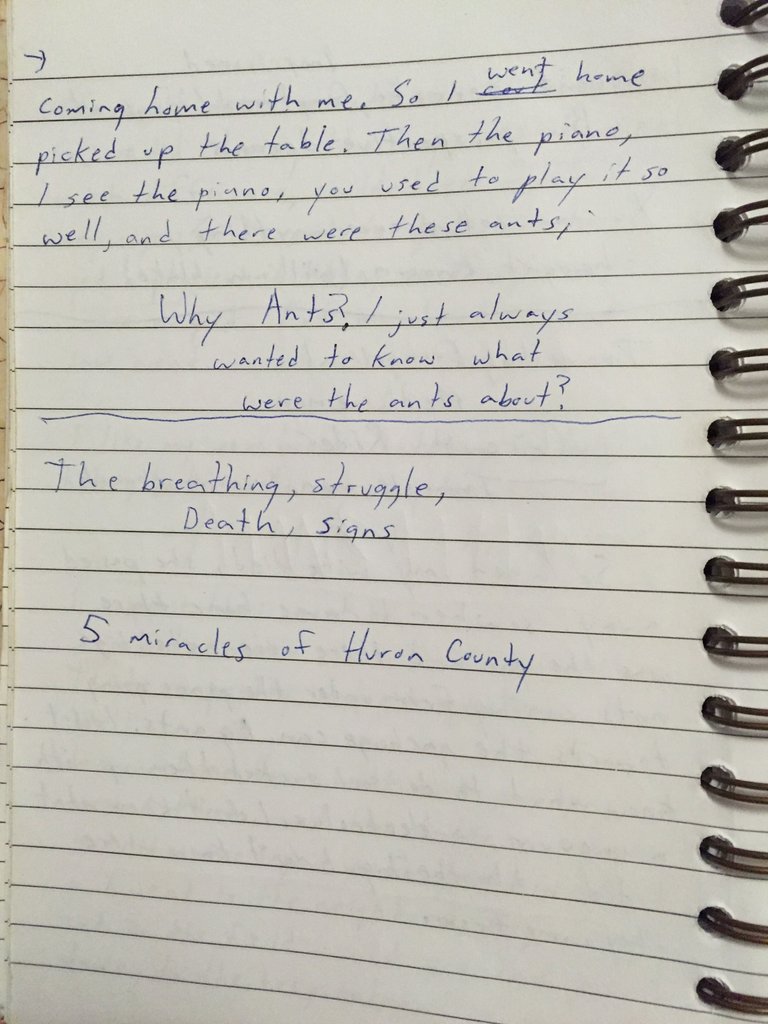 →
went
Coming home with me. So I home
picked up the table. Then the piano,
I see the piano, you used to play it so
well, and there were these ants,
Why Ants? I just always
wanted to know what
were the ants about?
The breathing, struggle,
Death, signs
5 miracles of Huron County